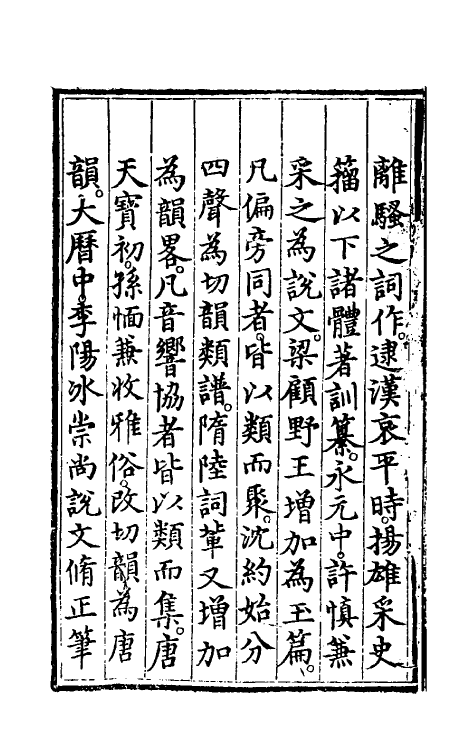 離騷之詞作。逮漢哀平時。揚雄采史
籀以下諸體著訓纂。永元中。許慎兼
采之為說文。梁顧野王增加為玉篇。
凡偏旁同者。皆以類而聚。沈約始分
四聲為切韻類譜。隋陸詞軰又增加
為韻畧。凡音響協者皆以類而集。唐
天寶初。孫愐兼收雅俗。改切韻為唐
韻。大曆中。李陽冰崇尚說文脩正筆